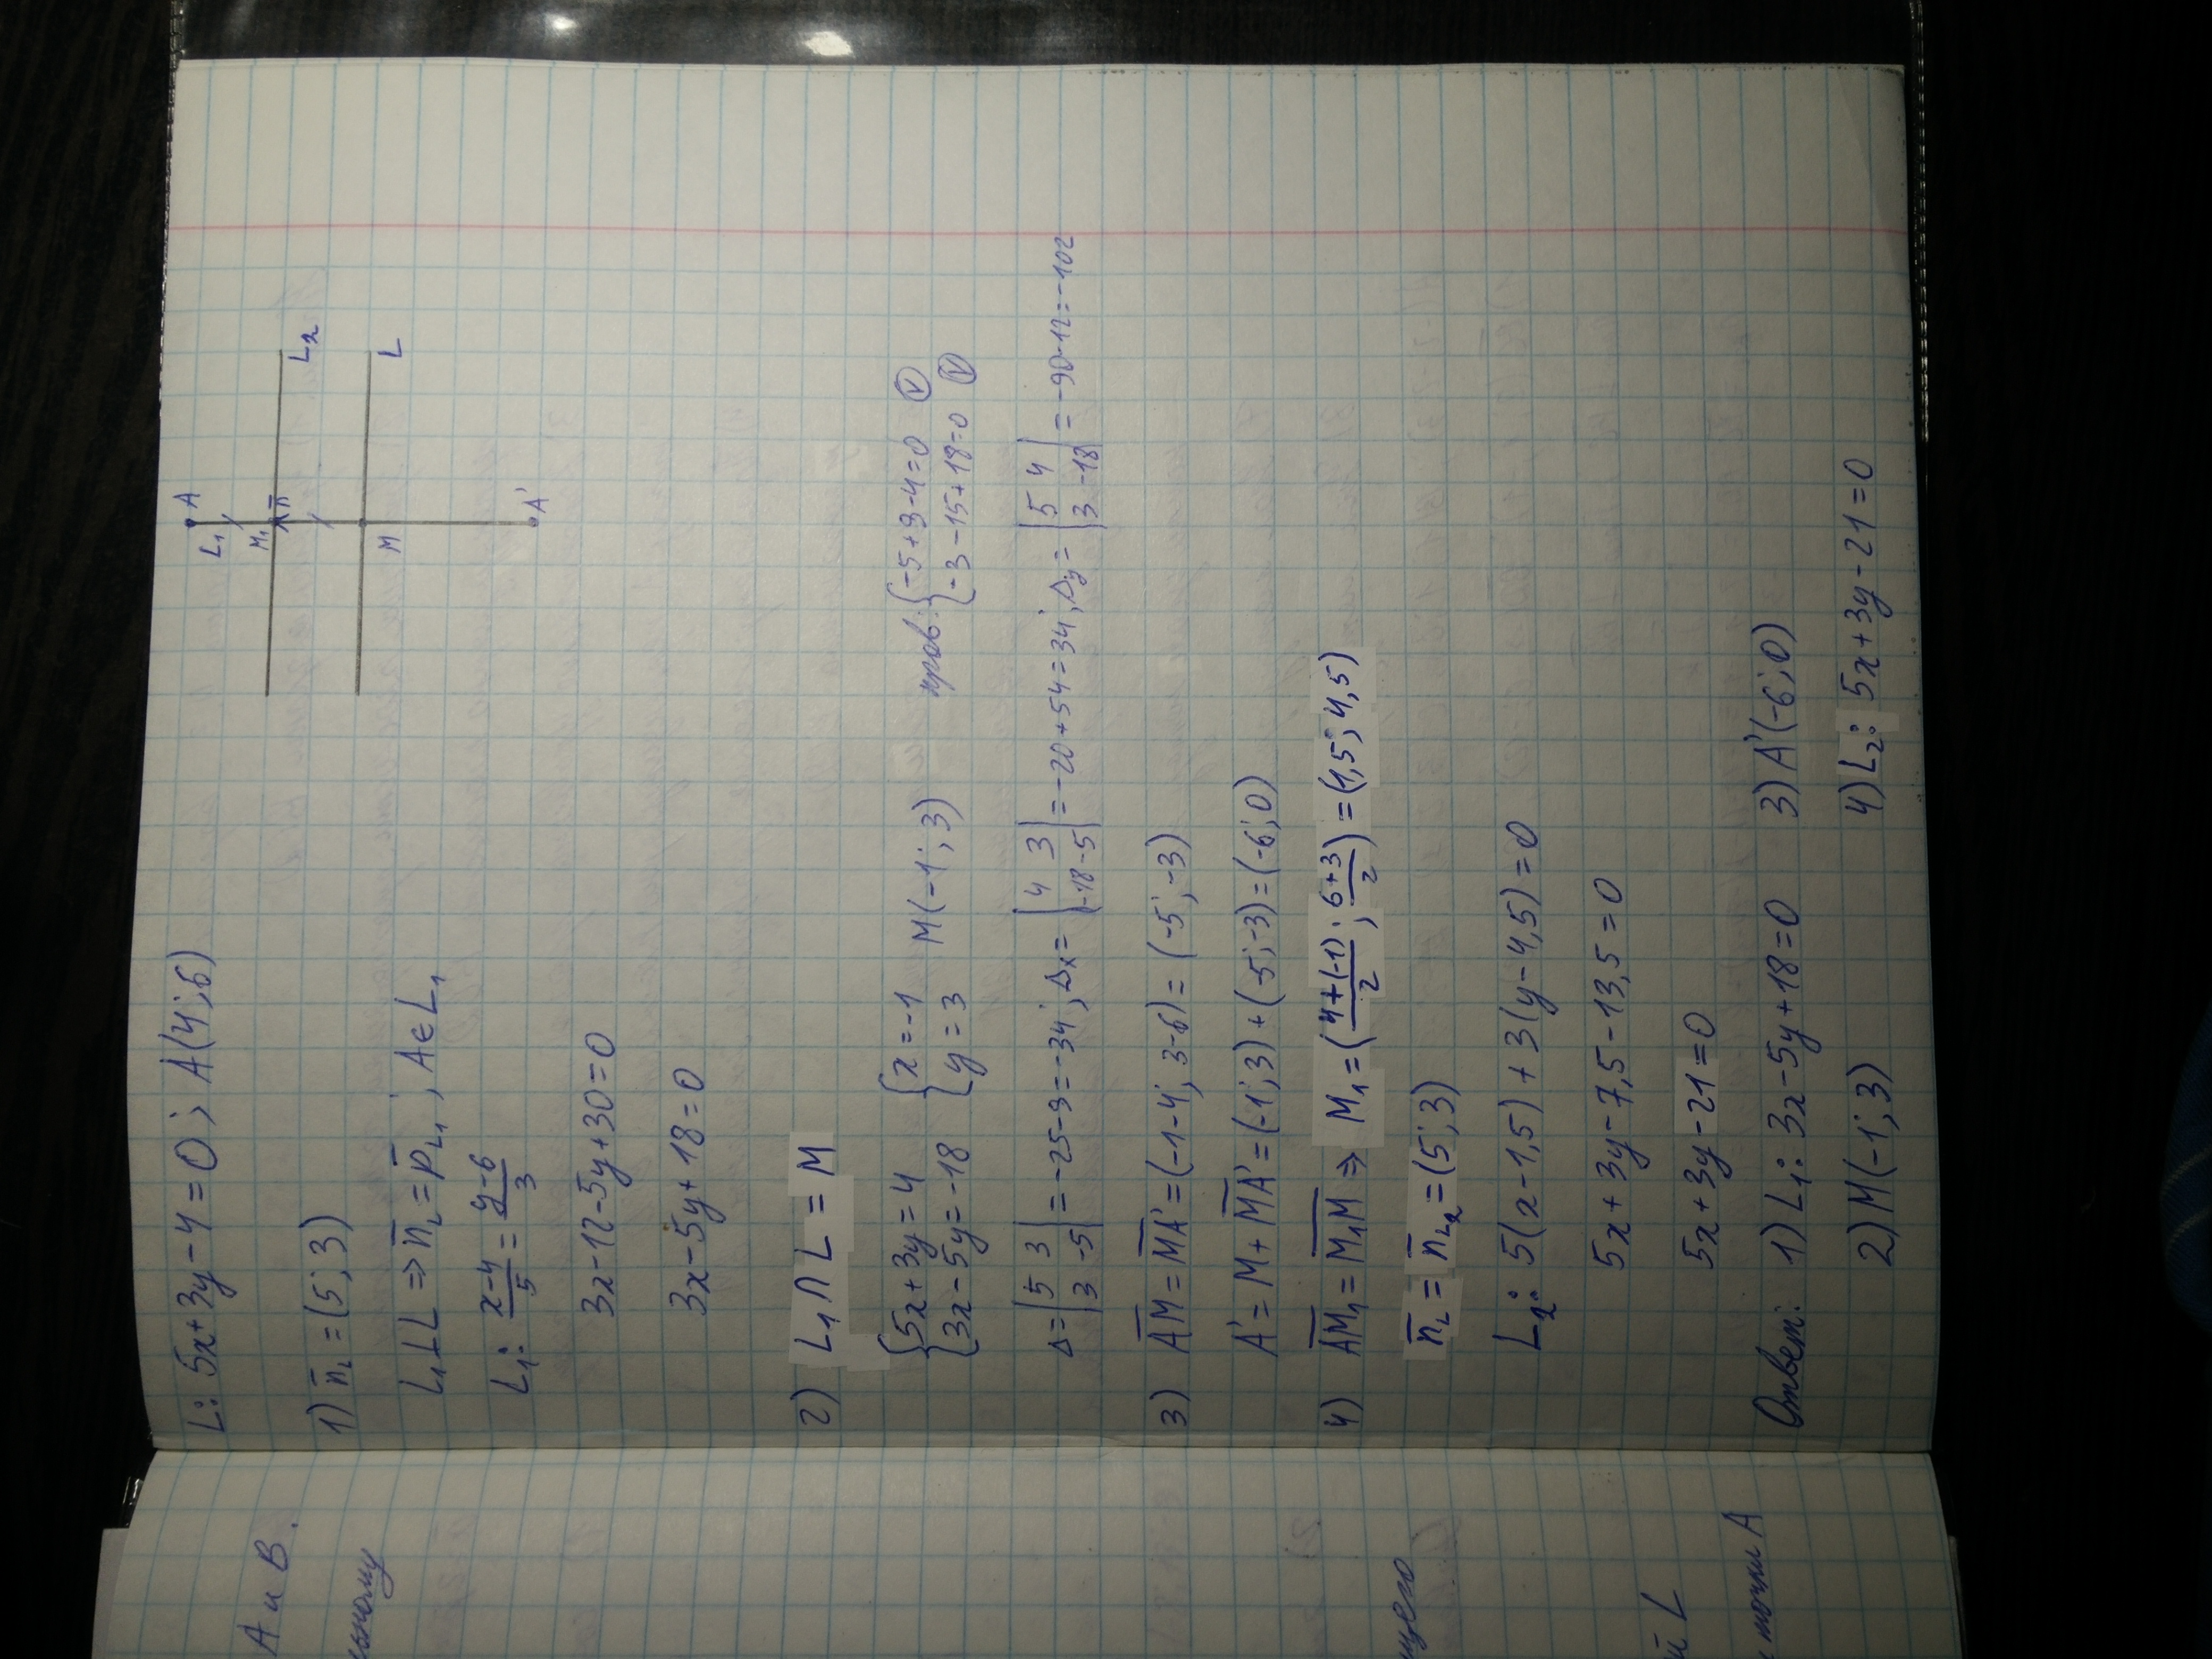 L: 5x+3y-4=0; A(4;6)
A
L₁
M₁
n̅
L₂
M
L
A'
1) n̅_L=(5;3)
L₁⊥L ⇒ n̅_L=p̅_L₁; A∈L₁
L₁: (x-4)/5=(y-6)/3
3x-12-5y+30=0
3x-5y+18=0
2) L₁∩L=M
{5x+3y=4 {x=-1 M(-1;3) пров.: {-5+9-4=0 (v)
{3x-5y=-18 {y=3 {-3-15+18=0 (v)
Δ=|5 3; 3 -5|=-25-9=-34; Δx=|4 3; -18 -5|=-20+54=34; Δy=|5 4; 3 -18|=-90-12=-102
3) A̅M̅=M̅A̅'=(-1-4; 3-6)=(-5;-3)
A'=M+M̅A̅'=(-1;3)+(-5;-3)=(-6;0)
4) A̅M̅₁=M̅₁M̅ ⇒ M₁=((4+(-1))/2; (6+3)/2)=(1,5; 4,5)
n̅_L=n̅_L₂=(5;3)
L₂: 5(x-1,5)+3(y-4,5)=0
5x+3y-7,5-13,5=0
5x+3y-21=0
Ответ: 1) L₁: 3x-5y+18=0 3) A'(-6;0)
2) M(-1;3) 4) L₂: 5x+3y-21=0
A и B.
L
точки A